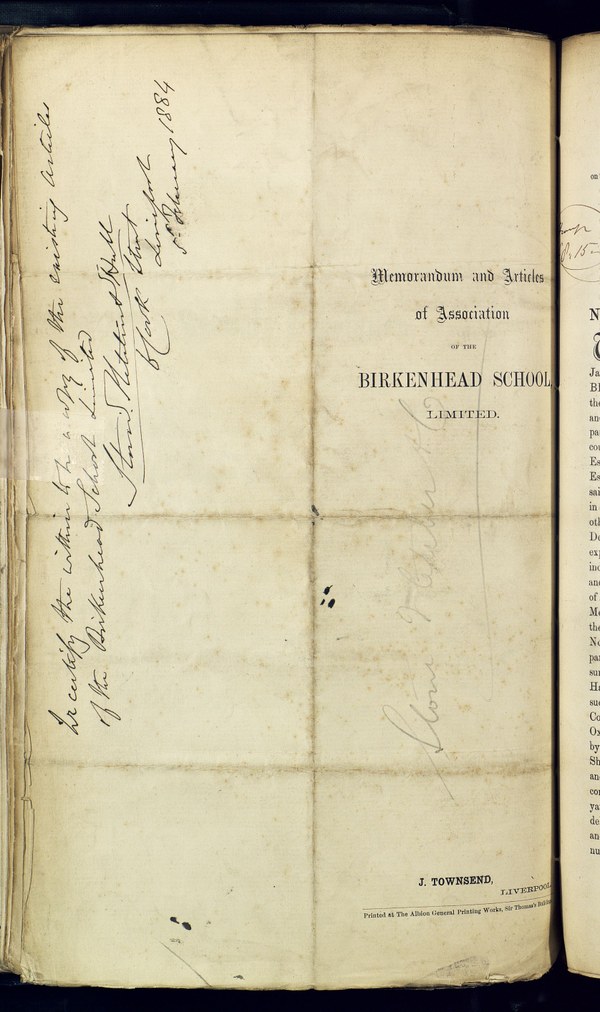 We certify the within to be a copy of the existing Articles
of the Birkenhead School Limited
Stone, Fletcher & Hull
6 Cook Street
Liverpool
5 February 1884
Memorandum and Articles
of Association
OF THE
BIRKENHEAD SCHOOL,
LIMITED.
Stone Fletcher &
J. TOWNSEND,
LIVERPOOL
Printed at The Albion General Printing Works, Sir Thomas's
on
15
N
Ja
Bl
the
an
pa
cou
Es
Es
sai
in
oth
De
exp
inc
and
of
Me
the
No
par
sur
Hi
suc
Co
Ox
by
Sh
and
con
ya
de
an
nu